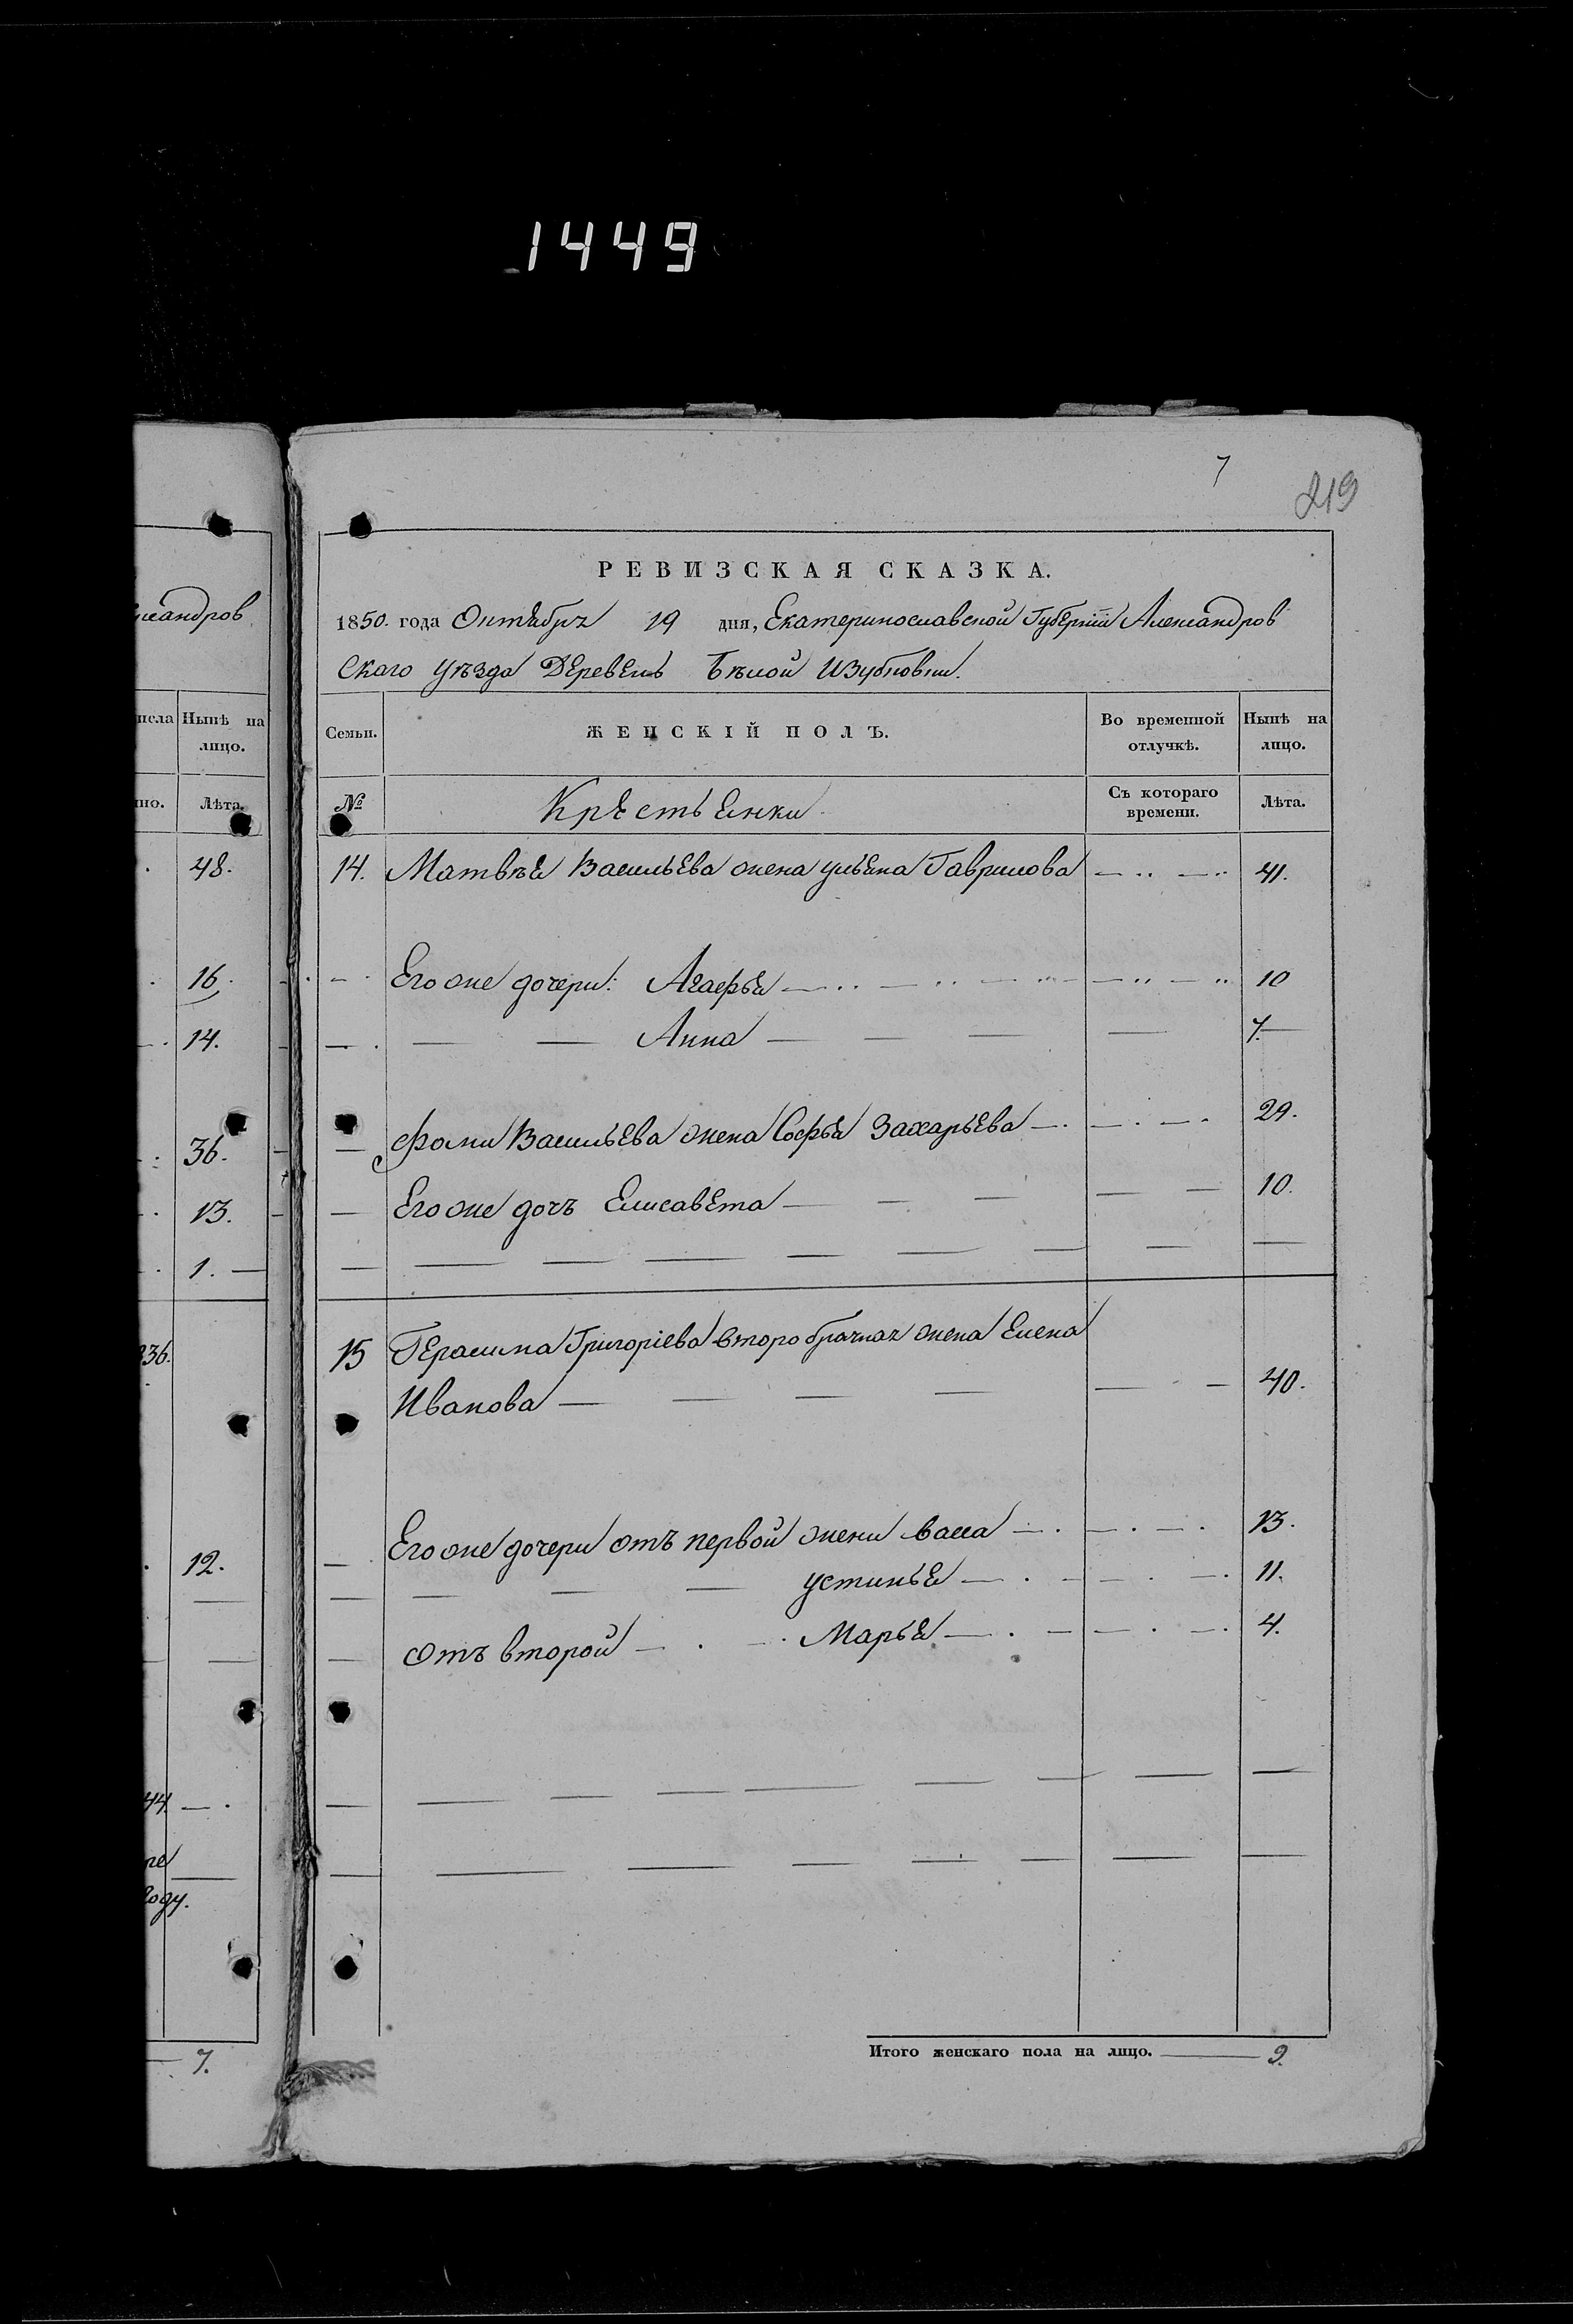 1449
7
219
РЕВИЗСКАЯ СКАЗКА.
1850. года Октября 19 дня, Екатеринославской Губернiи Александров
скаго уѣзда Деревень Бѣлой
лександров
Семьи. ЖЕНСКIЙ ПОЛЪ. Во временной отлучкѣ. Нынѣ на лицо.
№ Крестьянки Съ котораго времени. Лѣта.
14. Матвѣя Васильева жена ульяна Гаврилова — 41.
Его же дочери: Агафья — 10
— Анна — 7.
Фомы Васильева жена Софья Захарьева — 29.
Его же дочь Елисавета — 10.
15 Герасима Григорiева второбрачная жена Елена
Иванова — 40.
Его же дочери отъ первой жены васса — 13.
— устинья — 11.
отъ второй — Марья — 4.
Итого женскаго пола на лицо. — 9.
Нынѣ на
лицо.
Лѣта.
48.
16.
14.
36.
13.
1.
36.
12.
44
году.
7.